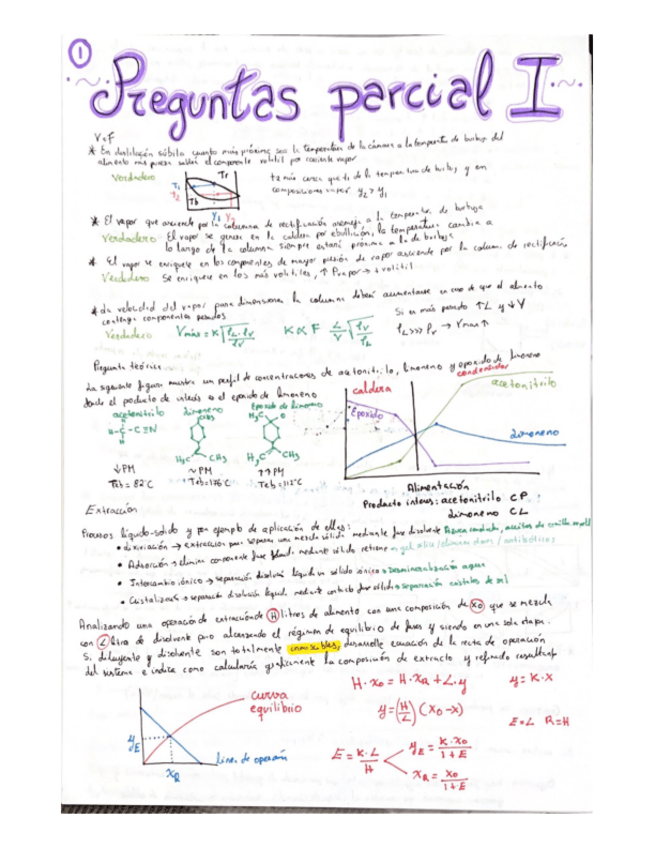 1
Preguntas parcial I
V o F
* En destilación súbita cuanto más próxima sea la temperatura de la cámara a la temperatura de burbuja del
alimento más pureza saldrá el componente volátil por corriente vapor
Verdadero
T1
T2
Tr
Tb
y1 y2
T2 más cerca que T1 de la temperatura de burbuja y en
composiciones vapor y2 > y1
* El vapor que asciende por la columna de rectificación asemeja a la temperatura de burbuja
Verdadero El vapor se genera en la caldera por ebullición, la temperatura cambia a
lo largo de la columna siempre estará próxima a la de burbuja
* El vapor se enriquece en los componentes de mayor presión de vapor asciende por la columna de rectificación
Verdadero Se enriquece en los más volátiles, ↑ Pvapor → + volátil
* La velocidad del vapor para dimensionar la columna deberá aumentarse en caso de que el alimento
contenga componentes pesados
Verdadero
Si es más pesado ↑L y ↓V
Pregunta teórica
La siguiente figura muestra un perfil de concentraciones de acetonitrilo, limoneno y epóxido de limoneno
donde el producto de interés es el epóxido de limoneno
acetonitrilo limoneno Epóxido de limoneno
H-C-C≡N
H3C
H3C CH3
↓PM ~PM ↑↑PM
Teb= 82ºC Teb=176ºC Teb=112ºC
caldera
condensador
Epóxido
acetonitrilo
limoneno
Alimentación
Producto interés: acetonitrilo CP
limoneno CL
Extracción
Procesos líquido-sólido y pon ejemplo de aplicación de ellos:
• Lixiviación → extracción para separar una mezcla sólida mediante fase disolvente
• Adsorción → elimina componente fase fluida mediante sólido retiene
• Intercambio iónico → separación disolución líquida en sólido iónico → Desmineralización agua
• Cristalización → separación disolución líquida mediante contacto fase sólida → separación cristales de sal
Analizando una operación de extracción de H litros de alimento con una composición de x0 que se mezcla
con L litros de disolvente puro alcanzando el régimen de equilibrio de fases y siendo en una sola etapa.
Si diluyente y disolvente son totalmente inmiscibles, desarrolle ecuación de la recta de operación
del sistema e indice como calcularía gráficamente la composición de extracto y refinado resultantes
curva
equilibrio
yE
xR
Línea de operación
H·x0 = H·xR + L·y
y = K·x
y = (H/L) (x0-x)
E=L R=H
E = K·L/H
yE = K·x0/1+E
xR = x0/1+E